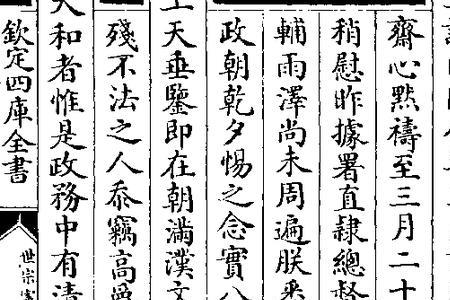 齋心黙禱至三月二十
稍慰昨據署直隷總督
輔雨澤尚未周遍朕乗
政朝乾夕惕之念實
上天垂鑒即在朝滿漢文
殘不法之人忝竊高爵
天和者惟是政務中有清
欽定四庫全書
世宗憲